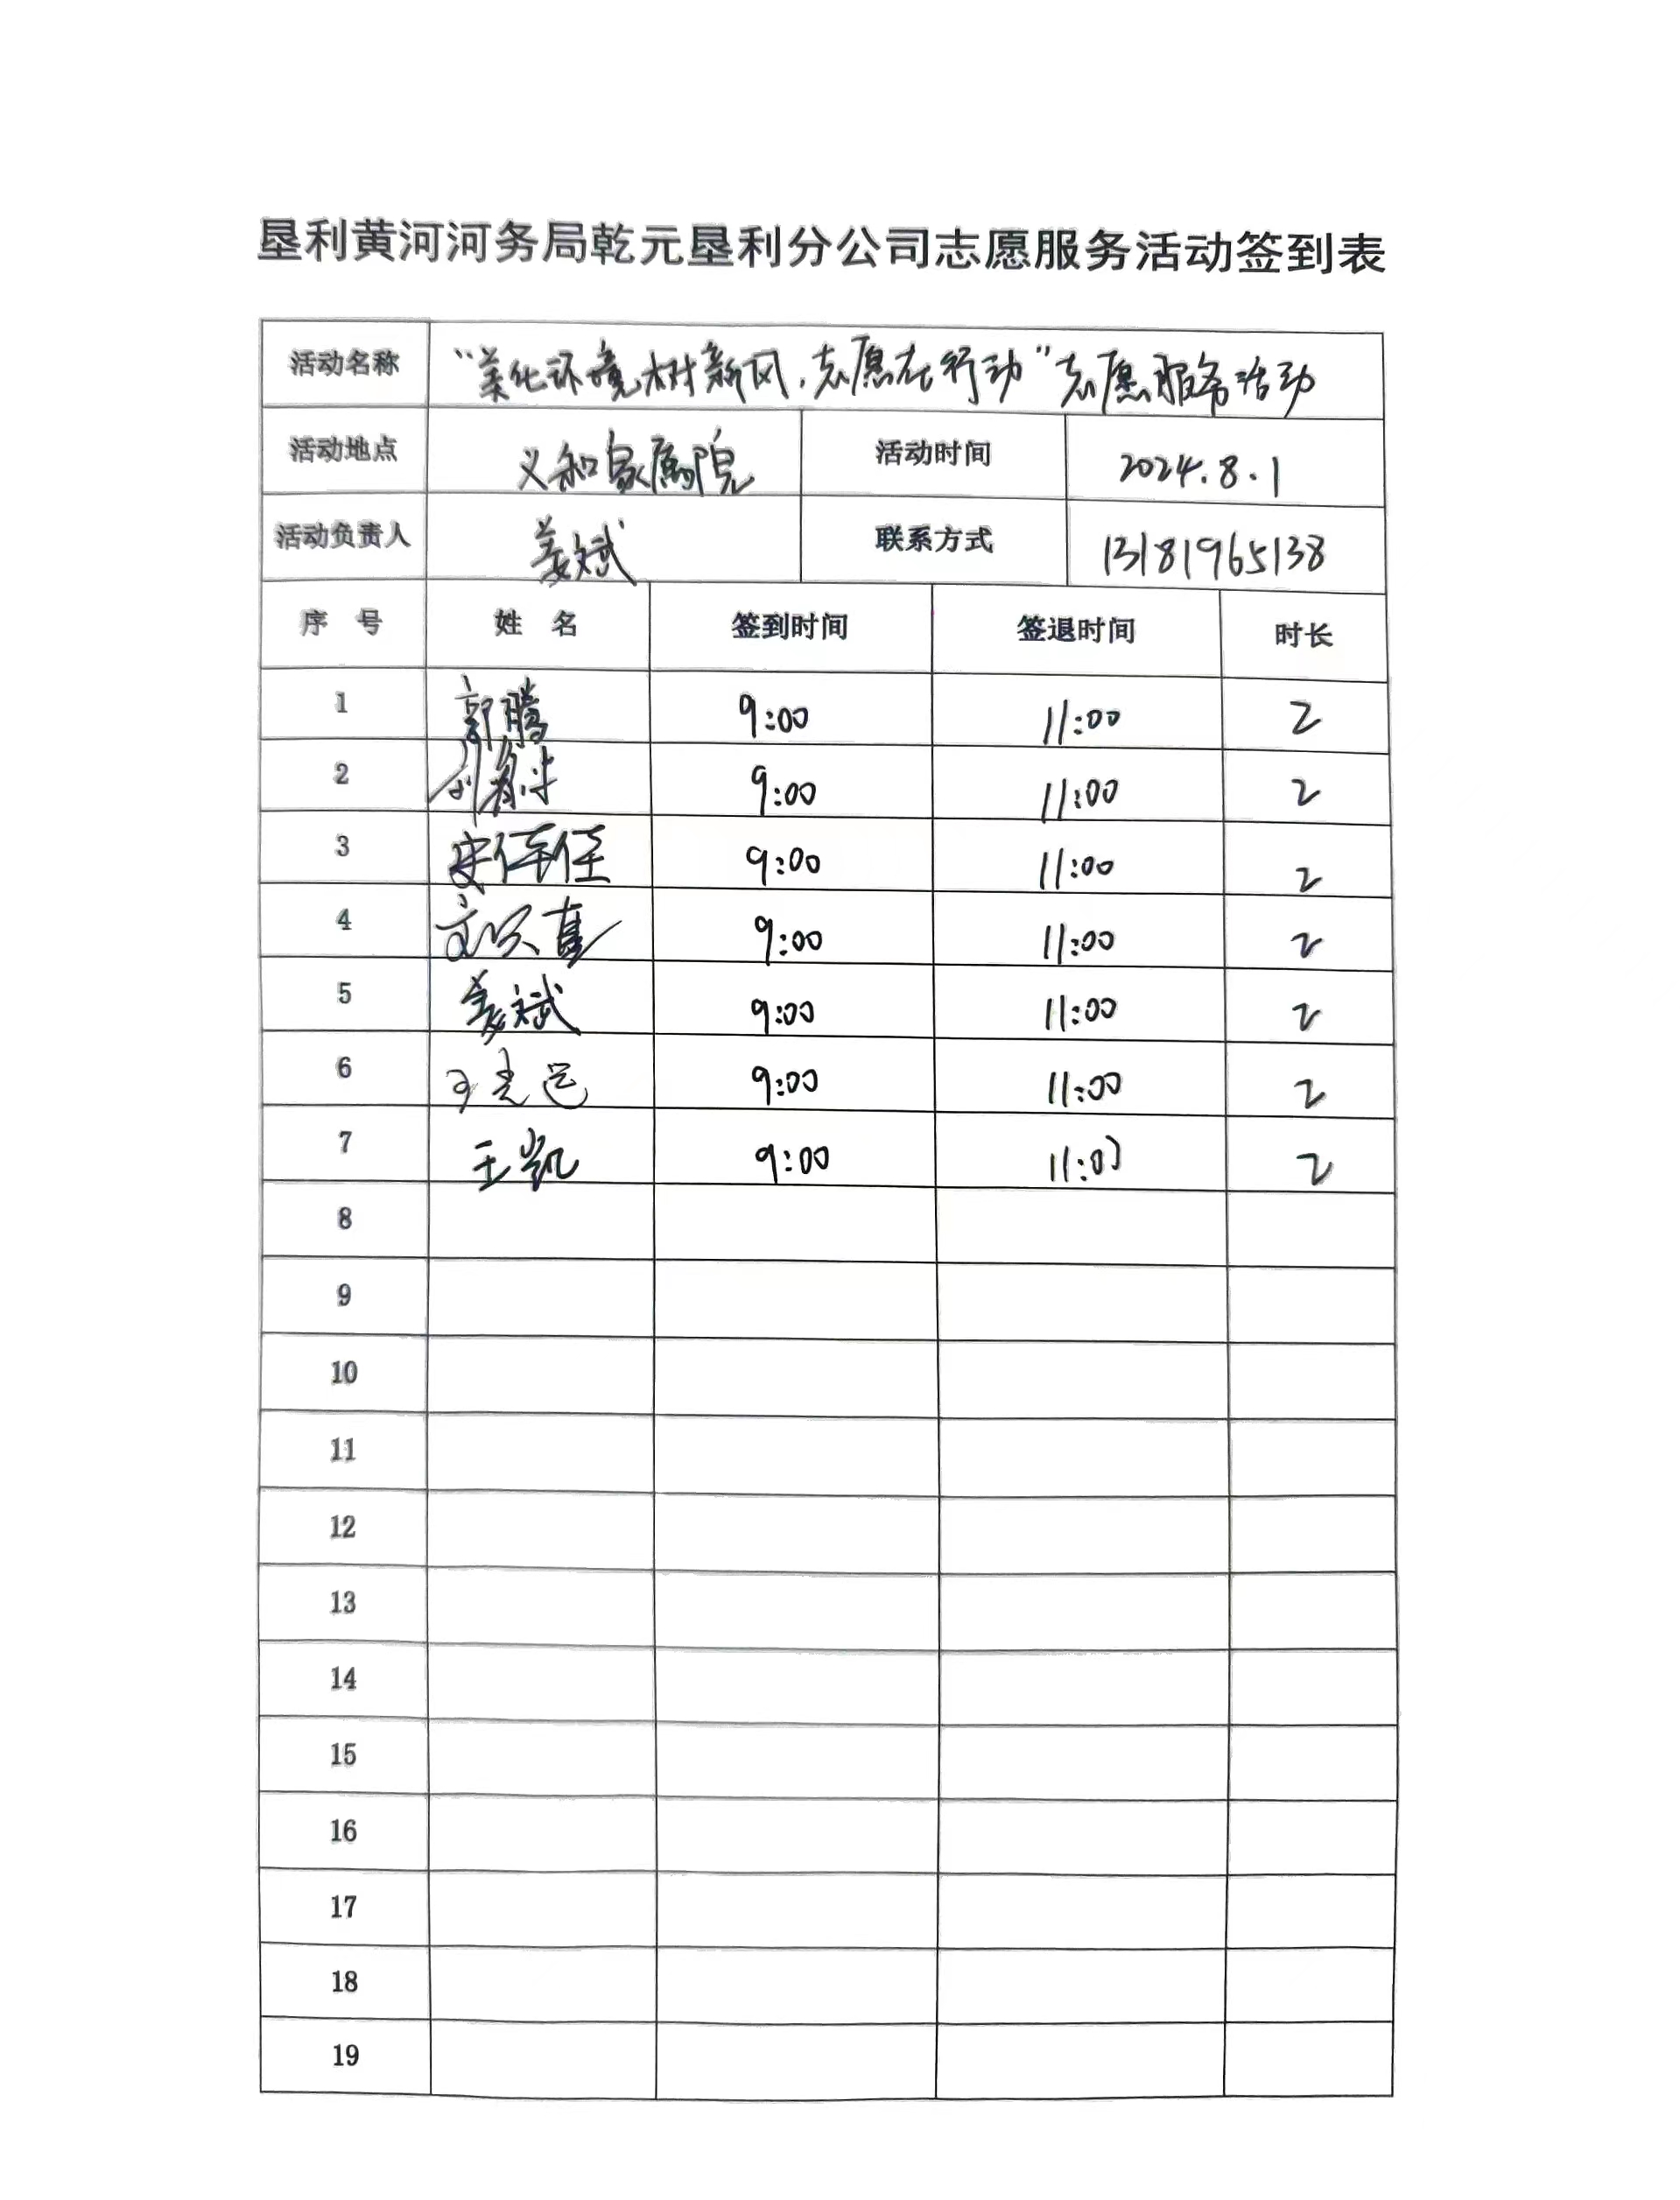 垦利黄河河务局乾元垦利分公司志愿服务活动签到表
活动名称 “美化环境树新风，志愿在行动”志愿服务活动
活动地点 义和家属院 活动时间 2024.8.1
活动负责人 姜斌 联系方式 13181965138
序 号 姓 名 签到时间 签退时间 时长
1 郭腾 9:00 11:00 2
2 9:00 11:00 2
3 9:00 11:00 2
4 9:00 11:00 2
5 姜斌 9:00 11:00 2
6 9:00 11:00 2
7 王凯 9:00 11:00 2
8
9
10
11
12
13
14
15
16
17
18
19